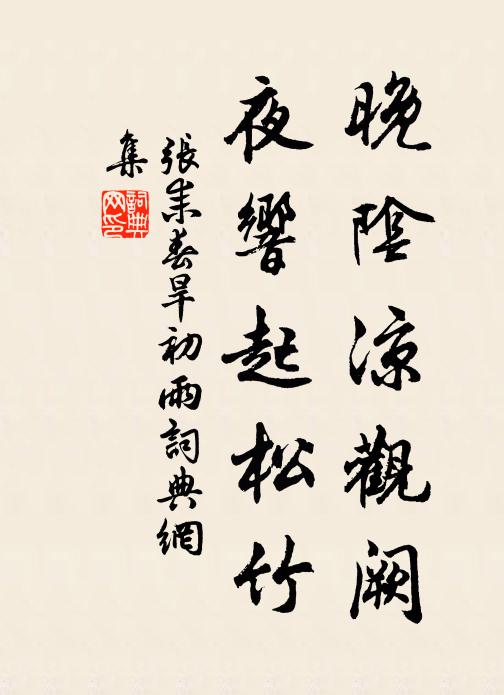 晚陰涼觀闕
夜響起松竹
張耒春旱初雨詞典網
集
詞典網印